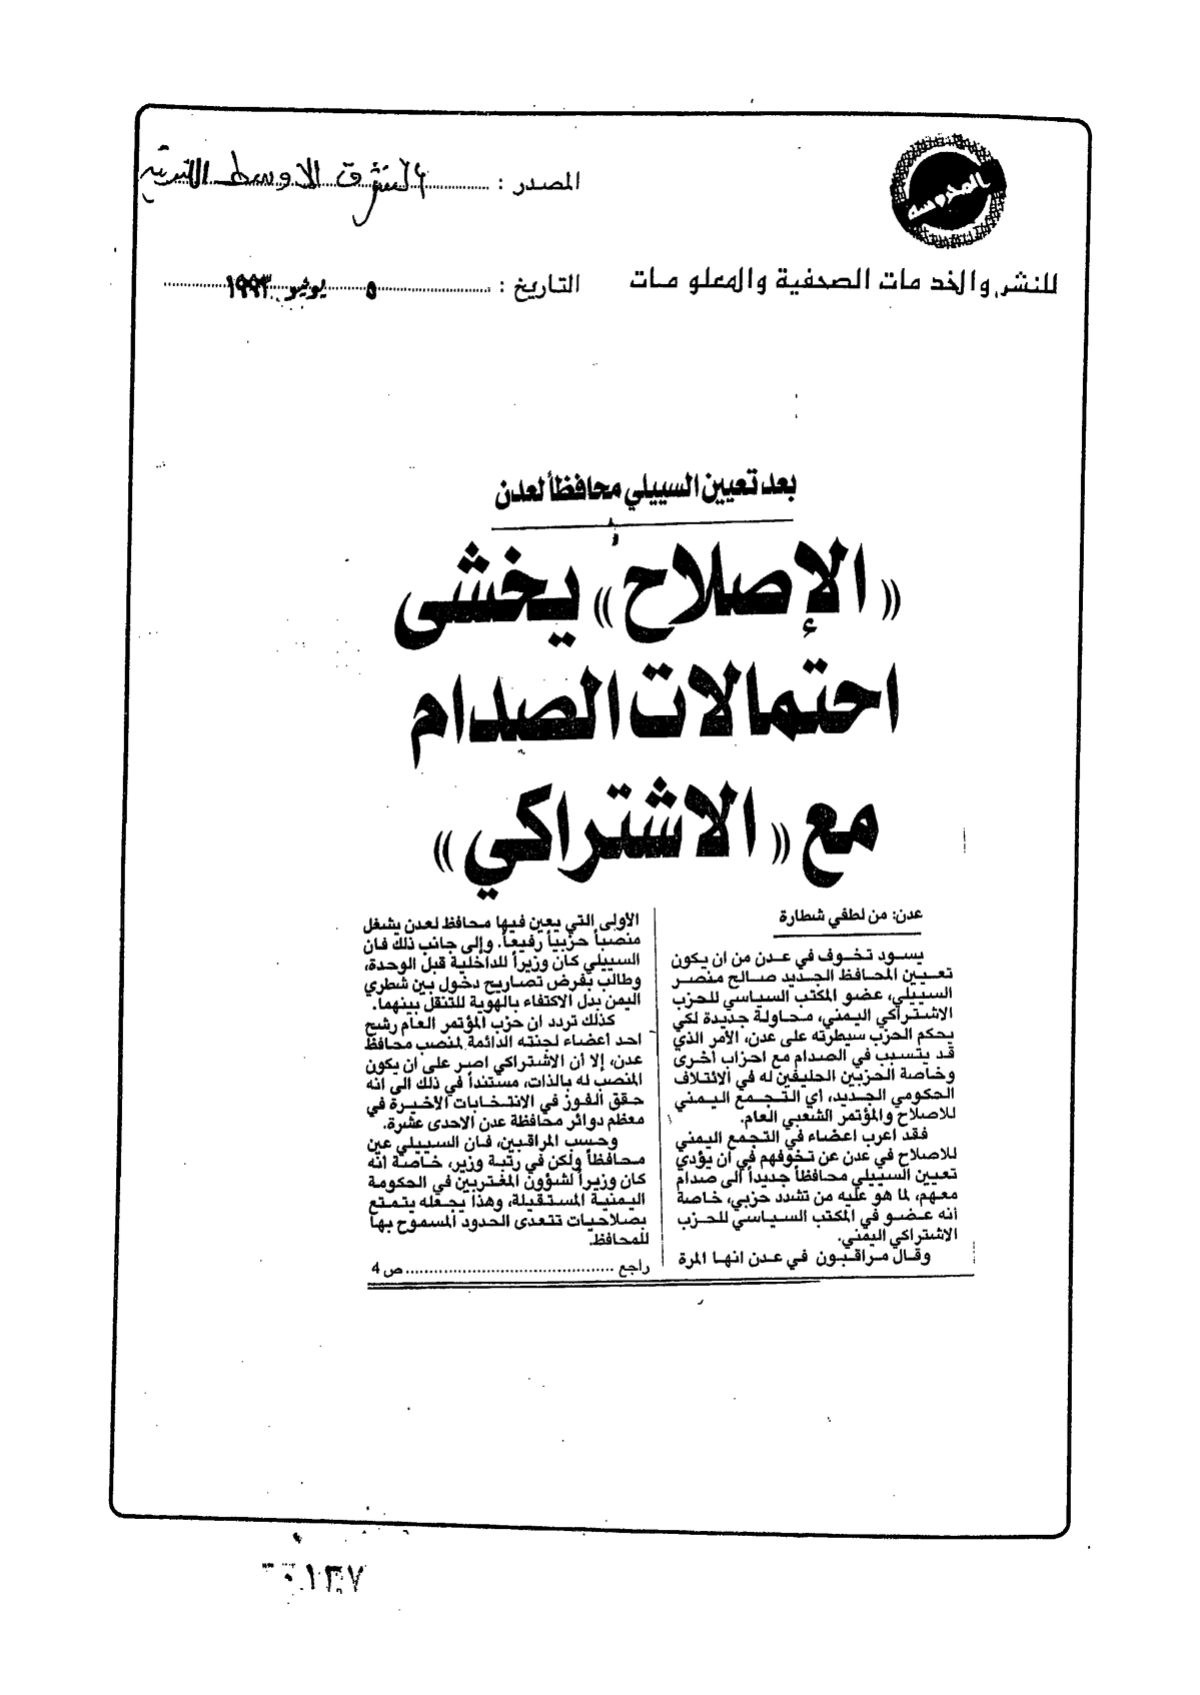 المحروسة
للنشر والخدمات الصحفية والمعلومات
المصدر : الشرق الاوسط اللندنية
التاريخ : ٥ يونيو ١٩٩٣
بعد تعيين السييلي محافظاً لعدن
«الإصلاح» يخشى
احتمالات الصدام
مع «الاشتراكي»
عدن: من لطفي شطارة
يسود تخوف في عدن من ان يكون
تعيين المحافظ الجديد صالح منصر
السييلي، عضو المكتب السياسي للحزب
الاشتراكي اليمني، محاولة جديدة لكي
يحكم الحزب سيطرته على عدن، الأمر الذي
قد يتسبب في الصدام مع احزاب أخرى
وخاصة الحزبين الحليفين له في الائتلاف
الحكومي الجديد، أي التجمع اليمني
للاصلاح والمؤتمر الشعبي العام.
فقد اعرب اعضاء في التجمع اليمني
للاصلاح في عدن عن تخوفهم في ان يؤدي
تعيين السييلي محافظاً جديداً الى صدام
معهم، لما هو عليه من تشدد حزبي، خاصة
أنه عضو في المكتب السياسي للحزب
الاشتراكي اليمني.
وقال مراقبون في عدن انها المرة
الأولى التي يعين فيها محافظ لعدن يشغل
منصباً حزبياً رفيعاً. وإلى جانب ذلك فان
السييلي كان وزيراً للداخلية قبل الوحدة،
وطالب بفرض تصاريح دخول بين شطري
اليمن بدل الاكتفاء بالهوية للتنقل بينهما.
كذلك تردد ان حزب المؤتمر العام رشح
احد اعضاء لجنته الدائمة لمنصب محافظ
عدن، إلا أن الاشتراكي اصر على ان يكون
المنصب له بالذات، مستنداً في ذلك الى انه
حقق الفوز في الانتخابات الاخيرة في
معظم دوائر محافظة عدن الاحدى عشرة.
وحسب المراقبين، فان السييلي عين
محافظاً ولكن في رتبة وزير، خاصة انه
كان وزيراً لشؤون المغتربين في الحكومة
اليمنية المستقيلة، وهذا يجعله يتمتع
بصلاحيات تتعدى الحدود المسموح بها
للمحافظ.
راجع ........................................ ص 4